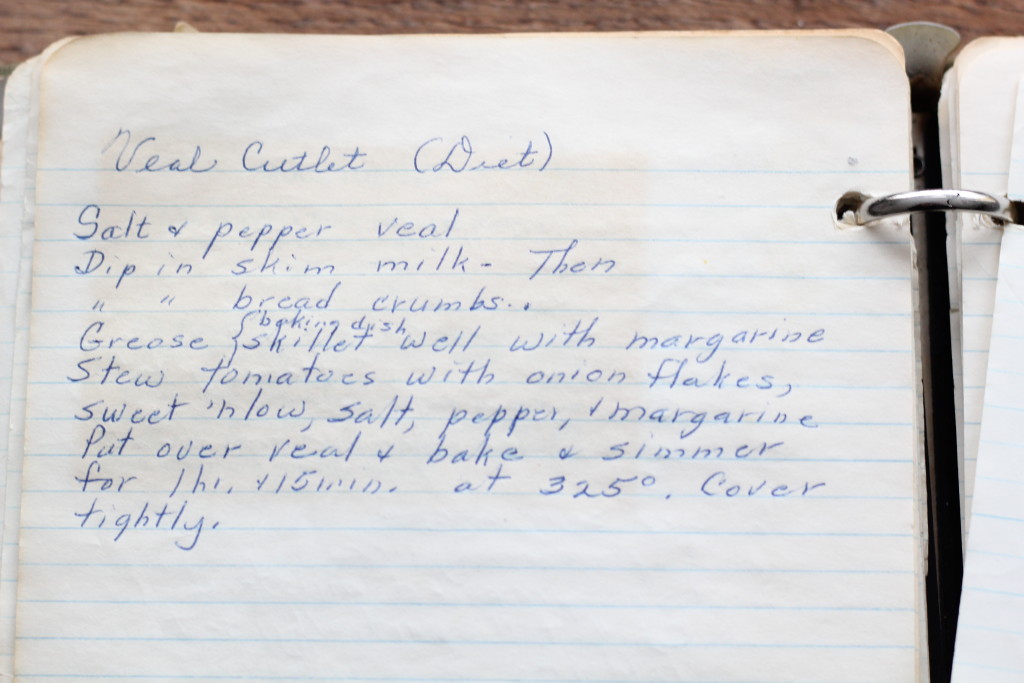 Veal Cutlet (Diet)
Salt & pepper veal
Dip in skim milk - Then
" " bread crumbs..
{baking dish
Grease {skillet well with margarine
Stew tomatoes with onion flakes,
sweet 'n low, salt, pepper, & margarine
Put over veal & bake & simmer
for 1 hr. & 15 min. at 325°. Cover
tightly.